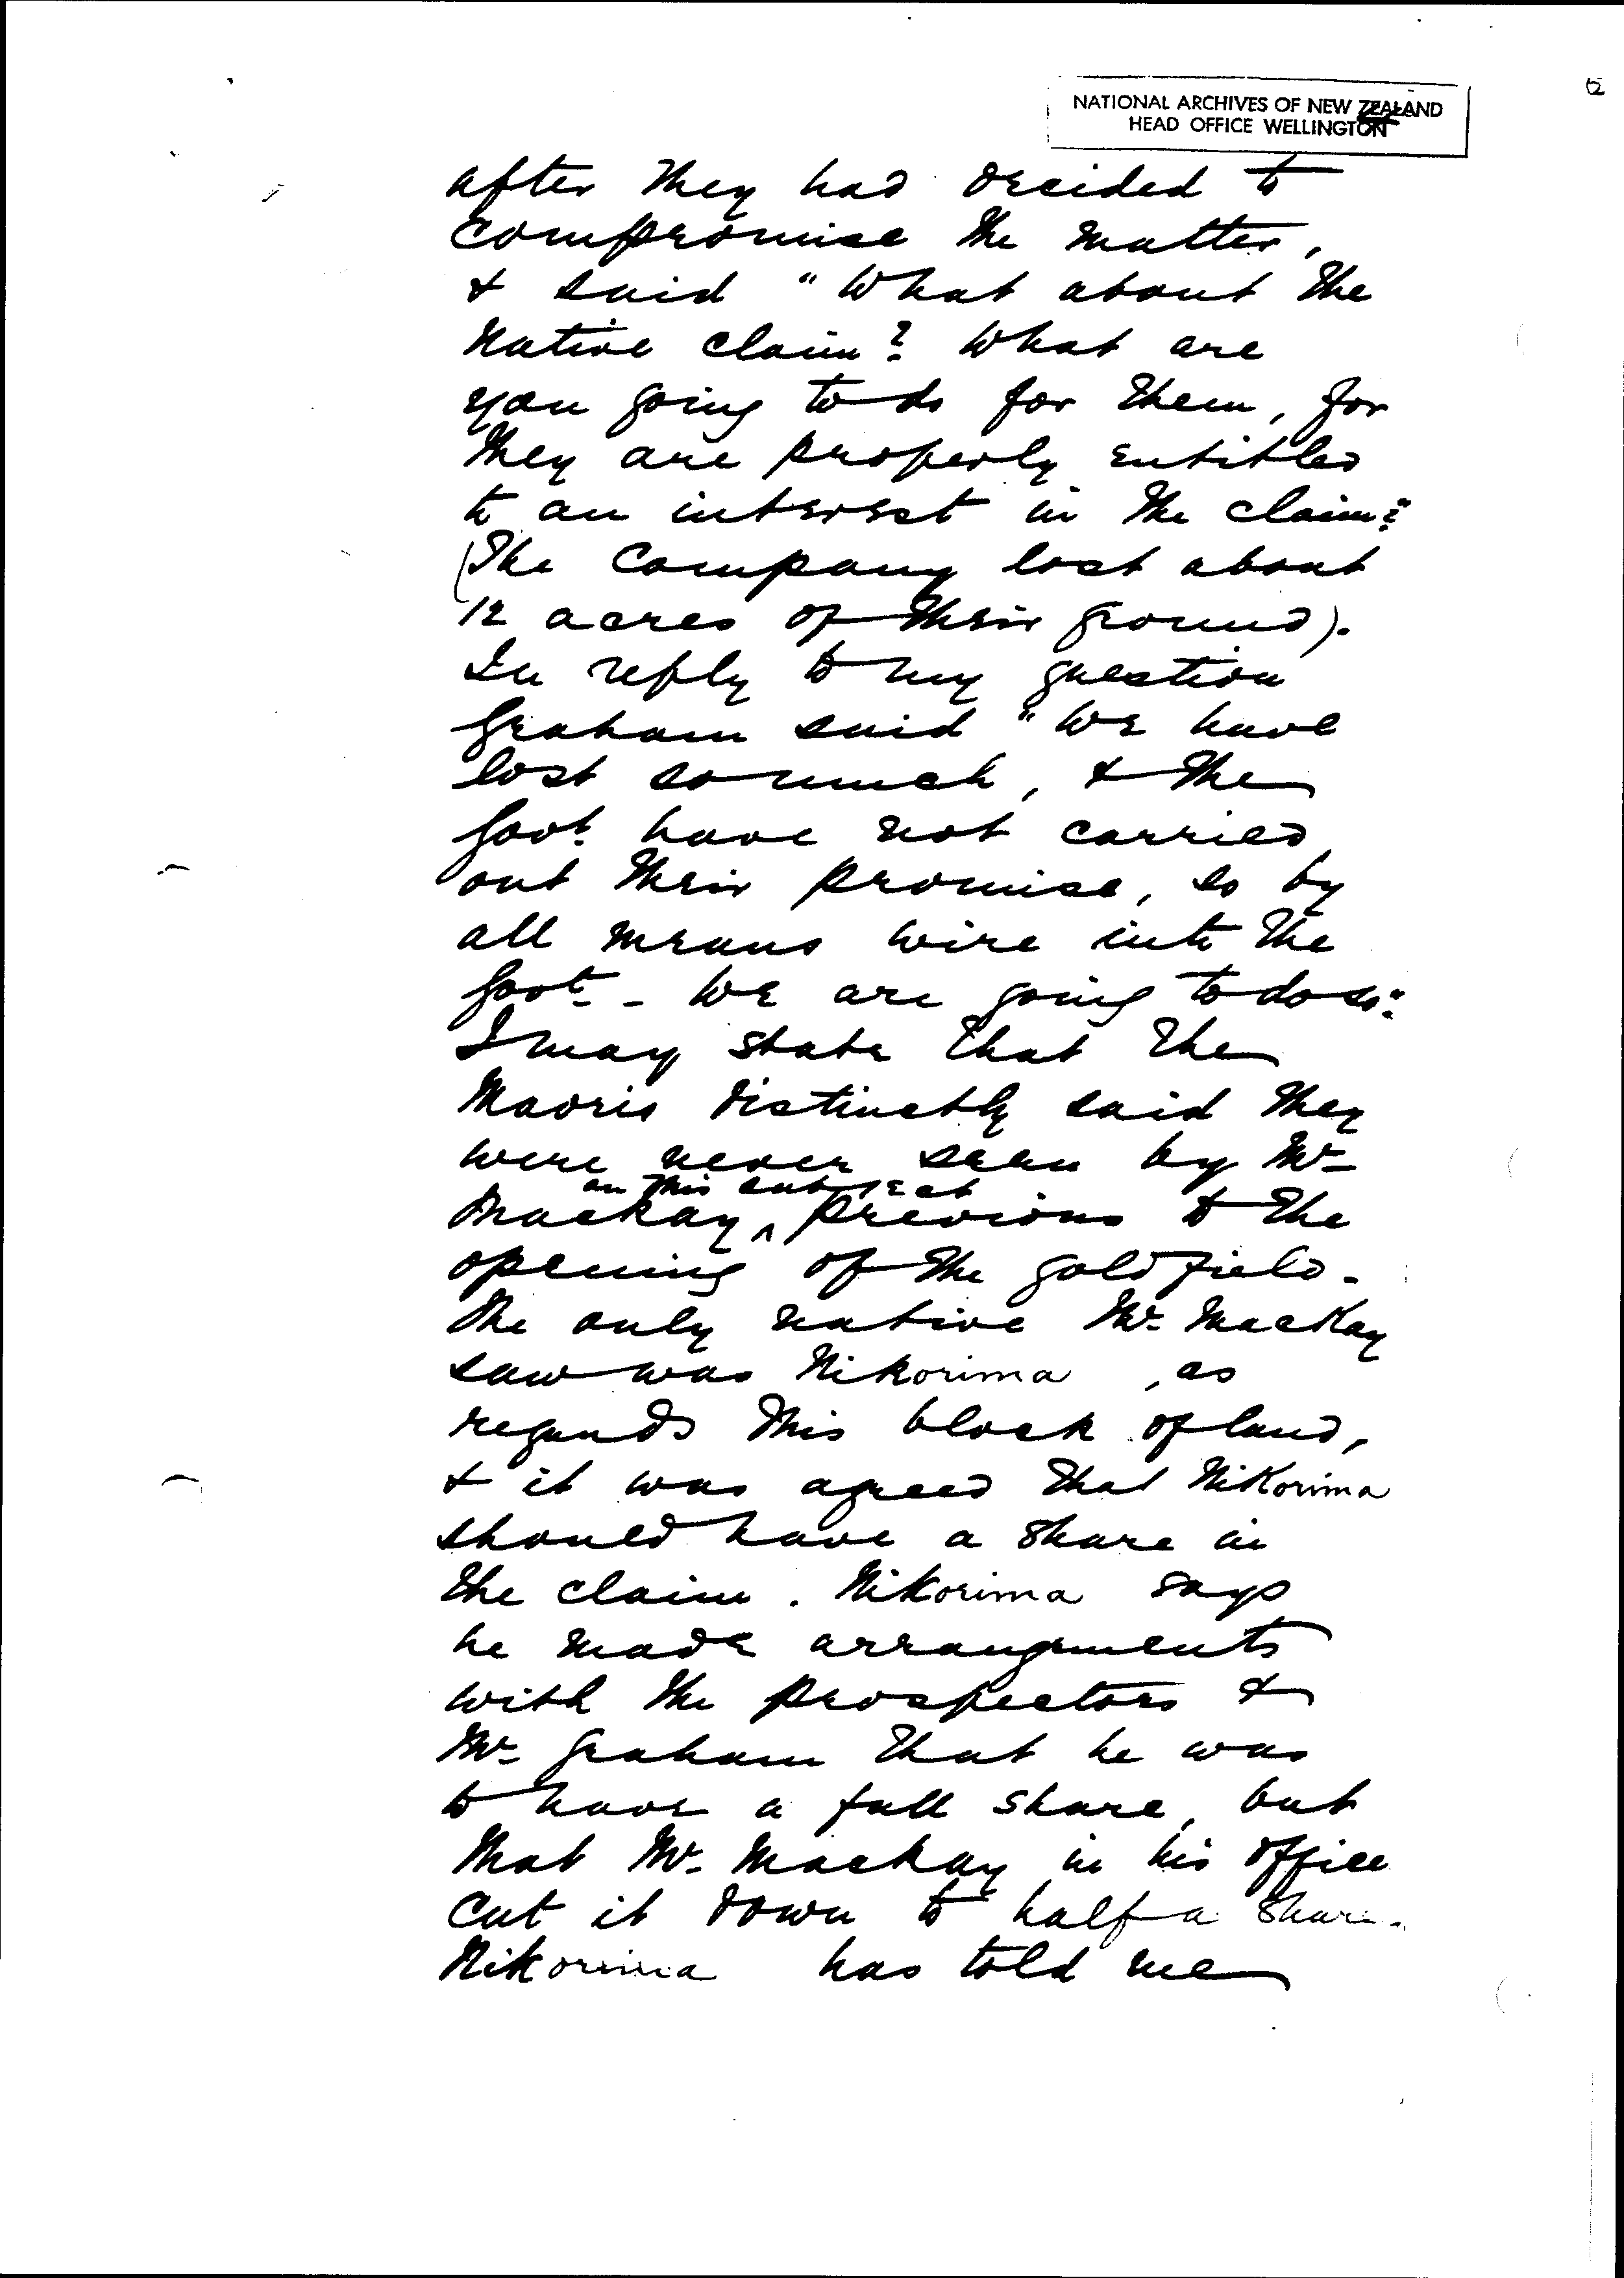 NATIONAL ARCHIVES OF NEW ZEALAND
HEAD OFFICE WELLINGTON
after they had decided to
compromise the matter,
& said "What about the
native claim? What are
you going to do for them, for
they are properly entitled
to an interest in the claim?"
(The Company lost about
12 acres of their ground).
In reply to my question
Graham said "We have
lost so much, & the
Govt. have not carried
out their promise, so by
all means wire into the
Govt. - We are going to do so."
I may state that the
Maoris distinctly said they
were never seen by Mr.
on this subject
Mackay ^ previous to the
opening of the goldfield.
The only native Mr. Mackay
saw was Nikorima, as
regards this block of land,
& it was agreed that Nikorima
should have a share in
the claim. Nikorima says
he made arrangements
with the prospectors &
Mr. Graham that he was
to have a full share, but
that Mr. Mackay in his office
cut it down to half a share.
Nikorima has told me